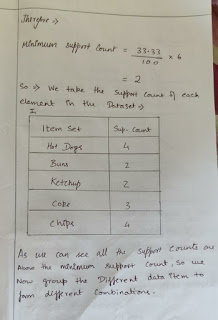 Therefore :-
Minimum support count = 33.33 / 100 x 6
= 2
So :-> We take the support count of each
element in the Dataset :->
I1
Item Set Sup. Count
Hot Dogs 4
Buns 2
Ketchup 2
Coke 3
Chips 4
As we can see all the support counts are
Above the minimum support count, So we
Now group the Different data item to
form different Combinations.